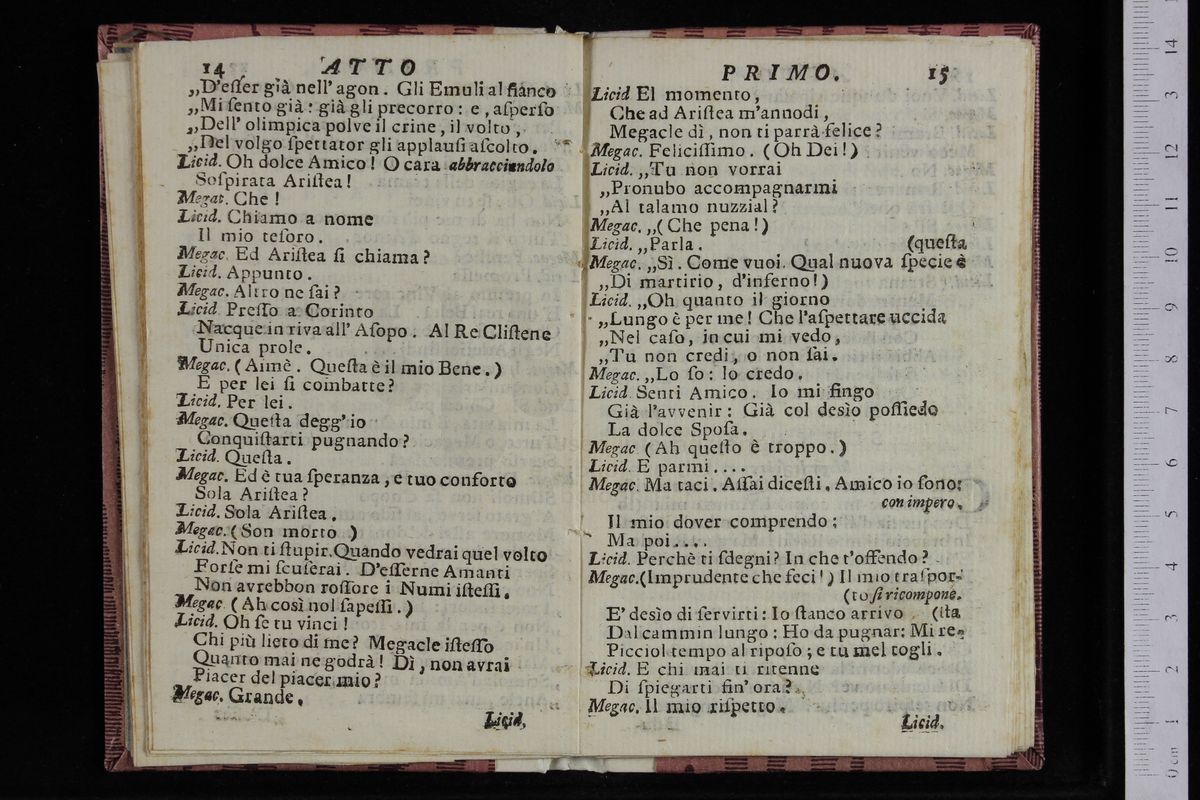 14 ATTO
„D'eſſer già nell' agon. Gli Emuli al fianco
„Mi ſento già: già gli precorro: e, aſperſo
„Dell' olimpica polve il crine, il volto,
„Del volgo ſpettator gli applauſi aſcolto.
Licid. Oh dolce Amico! O cara abbracciandolo
Soſpirata Ariſtea!
Megac. Che!
Licid. Chiamo a nome
Il mio teſoro.
Megac. Ed Ariſtea ſi chiama?
Licid. Appunto.
Megac. Altro ne ſai?
Licid. Preſſo a Corinto
Nacque in riva all' Aſopo. Al Re Cliſtene
Unica prole.
Megac. (Aimè. Queſta è il mio Bene.)
E per lei ſi combatte?
Licid. Per lei.
Megac. Queſta degg' io
Conquiſtarti pugnando?
Licid. Queſta.
Megac. Ed è tua ſperanza, e tuo conforto
Sola Ariſtea?
Licid. Sola Ariſtea.
Megac. (Son morto.)
Licid. Non ti ſtupir. Quando vedrai quel volto
Forſe mi ſcuſerai. D'eſſerne Amanti
Non avrebbon roſſore i Numi iſteſſi.
Megac. (Ah così nol ſapeſſi.)
Licid. Oh ſe tu vinci!
Chi più lieto di me? Megacle iſteſſo
Quanto mai ne godrà! Dì, non avrai
Piacer del piacer mio?
Megac. Grande.
Licid.
PRIMO. 15
Licid El momento,
Che ad Ariſtea m'annodi,
Megacle dì, non ti parrà felice?
Megac. Feliciſſimo. (Oh Dei!)
Licid. „Tu non vorrai
„Pronubo accompagnarmi
„Al talamo nuzzial?
Megac. „(Che pena!)
Licid. „Parla. (queſta
Megac. „Sì. Come vuoi. Qual nuova ſpecie è
„Di martirio, d'inferno!)
Licid. „Oh quanto il giorno
„Lungo è per me! Che l'aſpettare uccida
„Nel caſo, in cui mi vedo,
„Tu non credi, o non ſai.
Megac. „Lo ſo: lo credo.
Licid. Senti Amico. Io mi fingo
Già l'avvenir: Già col desìo poſſiedo
La dolce Spoſa.
Megac (Ah queſto è troppo.)
Licid. E parmi....
Megac. Ma taci. Aſſai diceſti. Amico io ſono:
con impero.
Il mio dover comprendo;
Ma poi....
Licid. Perchè ti ſdegni? In che t'offendo?
Megac. (Imprudente che feci!) Il mio traſpor-
(to ſi ricompone.
E' desìo di ſervirti: Io ſtanco arrivo (ſta
Dal cammin lungo: Ho da pugnar: Mi re-
Picciol tempo al ripoſo; e tu mel togli.
Licid. E chi mai ti ritenne
Di ſpiegarti fin' ora?
Megac. Il mio riſpetto.
Licid.
0 cm 1 2 3 4 5 6 7 8 9 10 11 12 13 14